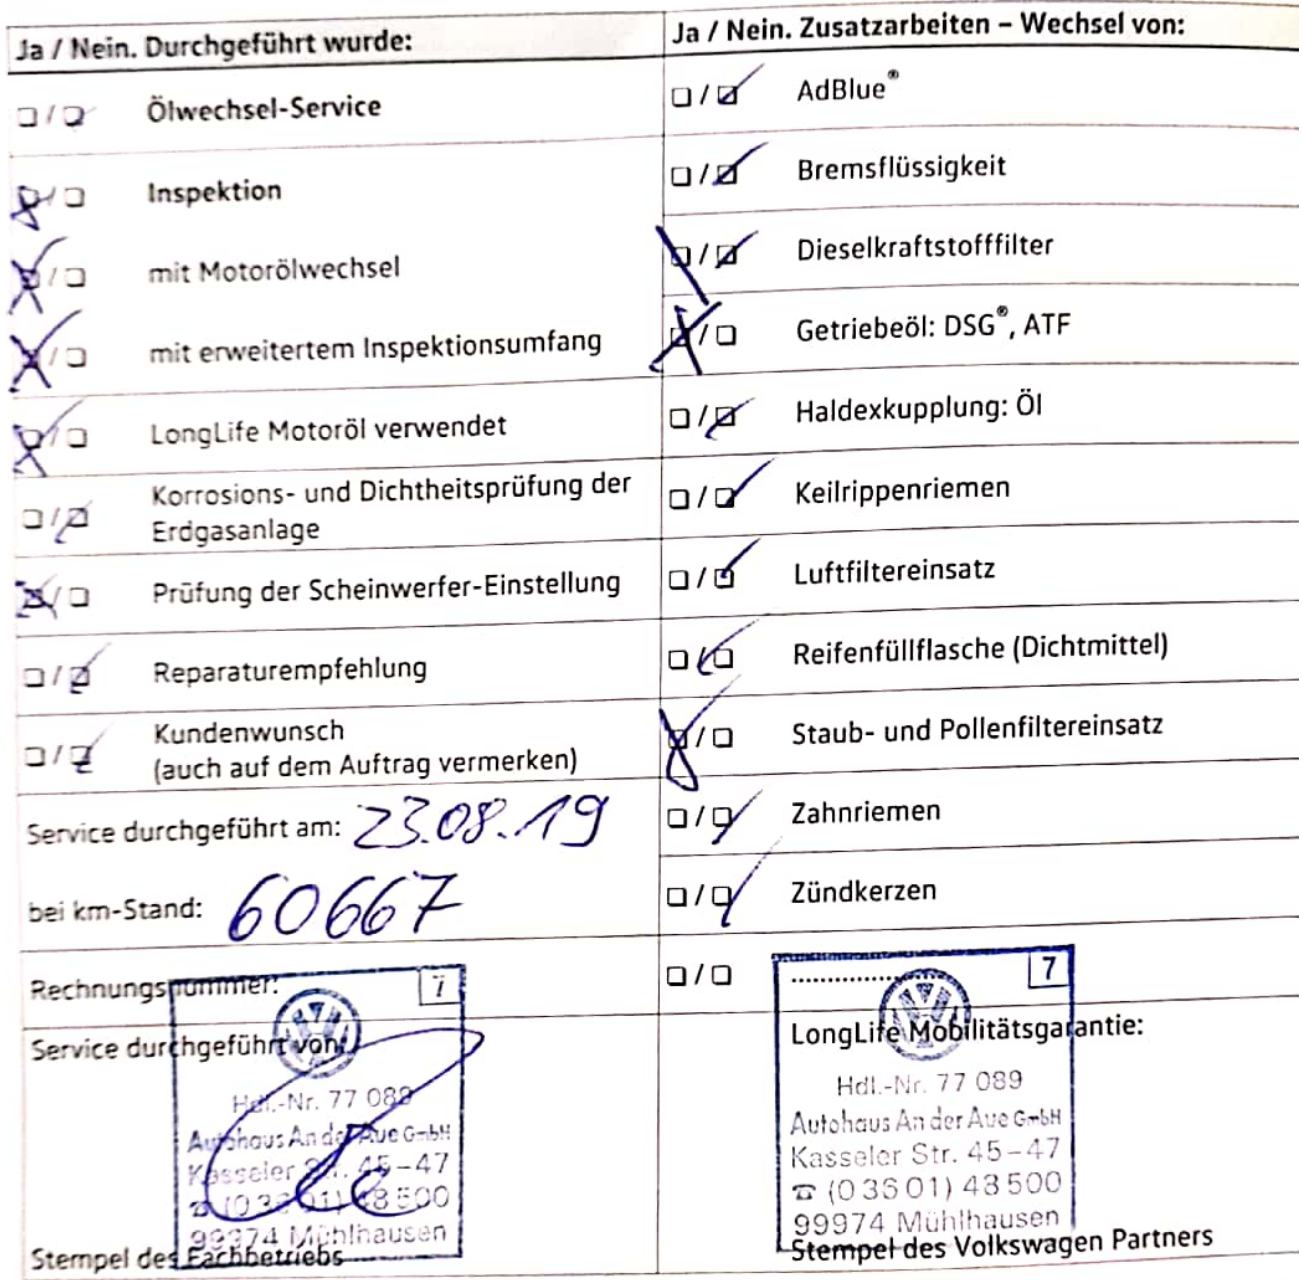 Ja / Nein. Durchgeführt wurde:
☐ / ☑ Ölwechsel-Service
☒ / ☐ Inspektion
☒ / ☐ mit Motorölwechsel
☒ / ☐ mit erweitertem Inspektionsumfang
☒ / ☐ LongLife Motoröl verwendet
☐ / ☑ Korrosions- und Dichtheitsprüfung der
Erdgasanlage
☒ / ☐ Prüfung der Scheinwerfer-Einstellung
☐ / ☑ Reparaturempfehlung
☐ / ☑ Kundenwunsch
(auch auf dem Auftrag vermerken)
Service durchgeführt am: 23.08.19
bei km-Stand: 60667
Rechnungsnummer:
7
Service durchgeführt von:
Hdl.-Nr. 77 089
Autohaus An der Aue GmbH
Kasseler Str. 45-47
☎ (0 36 01) 48 500
99974 Mühlhausen
Stempel des Fachbetriebs
Ja / Nein. Zusatzarbeiten – Wechsel von:
☐ / ☑ AdBlue®
☐ / ☑ Bremsflüssigkeit
☐ / ☑ Dieselkraftstofffilter
☒ / ☐ Getriebeöl: DSG®, ATF
☐ / ☑ Haldexkupplung: Öl
☐ / ☑ Keilrippenriemen
☐ / ☑ Luftfiltereinsatz
☐ / ☑ Reifenfüllflasche (Dichtmittel)
☒ / ☐ Staub- und Pollenfiltereinsatz
☐ / ☑ Zahnriemen
☐ / ☑ Zündkerzen
☐ / ☐ ....................
7
LongLife Mobilitätsgarantie:
Hdl.-Nr. 77 089
Autohaus An der Aue GmbH
Kasseler Str. 45-47
☎ (0 36 01) 48 500
99974 Mühlhausen
Stempel des Volkswagen Partners